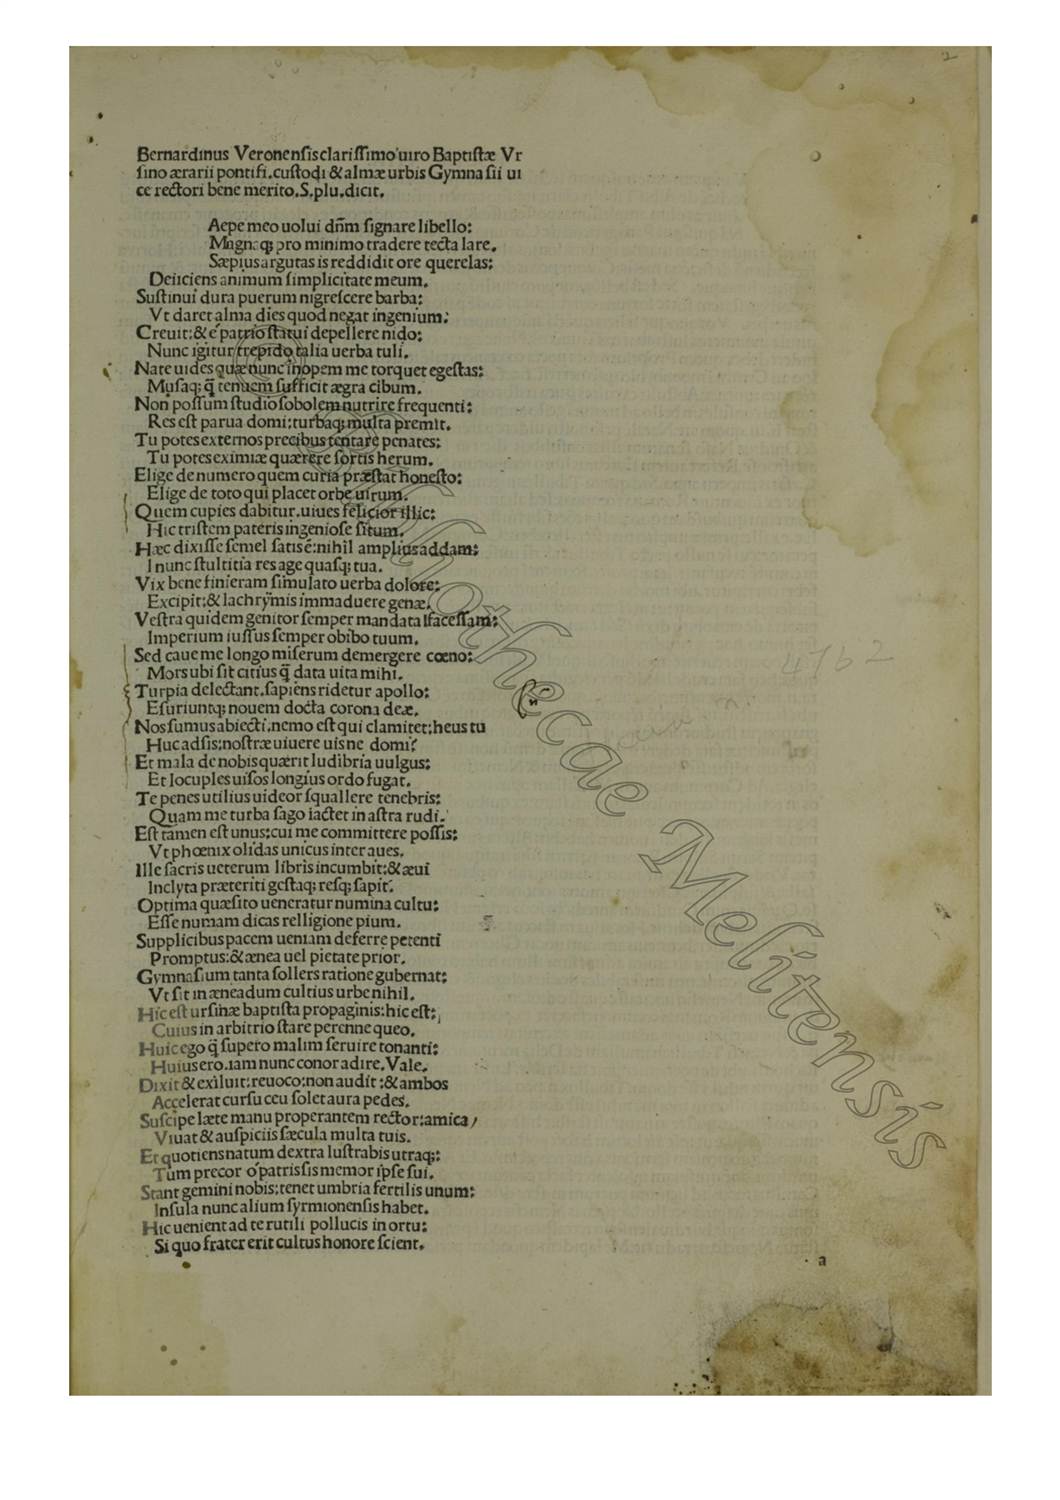 2
Bernardinus Veronensis clarissimo uiro Baptistæ Vr
sino ærarii pontifi. custodi & almæ urbis Gymnasii ui
ce rectori bene merito. S. plu. dicit.
Aepe meo uolui dn̄m signare libello:
Magnaq; pro minimo tradere tecta lare.
Sæpius argutas is reddidit ore querelas:
Deiiciens animum simplicitate meum.
Sustinui dura puerum nigrescere barba:
Vt daret alma dies quod negat ingenium:
Creuit: & é patrio statui depellere nido:
Nunc igitur trepido talia uerba tuli.
Nate uides quæ nunc inopem me torquet egestas:
Musaq; q̄ tenuem sufficit ægra cibum.
Non possum studio sobolem nutrire frequenti:
Res est parua domi: turbaq; multa premit.
Tu potes externos precibus tentare penates:
Tu potes eximiæ quærere sortis herum.
Elige de numero quem curia præstat honesto:
Elige de toto qui placet orbe uirum.
Quem cupies dabitur. uiues felicior illic:
Hic tristem pateris ingeniose situm.
Hæc dixisse semel satis ē: nihil amplius addam:
I nunc stultitia res age quasq; tua.
Vix bene finieram simulato uerba dolore:
Excipit: & lachrymis immaduere genæ.
Vestra quidem genitor semper mandata facessam:
Imperium iussus semper obibo tuum.
Sed caue me longo miserum demergere cœno:
Mors ubi sit citius q̄ data uita mihi.
Turpia delectant. sapiens ridetur apollo:
Esuriuntq; nouem docta corona deæ.
Nos sumus abiecti. nemo est qui clamitet: heus tu
Huc adsis: nostræ uiuere uisne domi?
Et mala de nobis quærit ludibria uulgus:
Et locuples uisos longius ordo fugat.
Te penes utilius uideor squallere tenebris:
Quam me turba sago iactet in astra rudi.
Est tamen est unus: cui me committere possis:
Vt phœnix olidas unicus inter aues.
Ille sacris ueterum libris incumbit: & æui
Inclyta præteriti gestaq; resq; sapit.
Optima quæsito ueneratur numina cultu:
Esse numam dicas relligione pium.
Supplicibus pacem ueniam deferre petenti
Promptus: & ænea uel pietate prior.
Gymnasium tanta sollers ratione gubernat:
Vt sit in æneadum cultius urbe nihil.
Hic est ursinæ baptista propaginis: hic est:
Cuius in arbitrio stare perenne queo.
Huic ego q̄ supero malim seruire tonanti:
Huius ero. iam nunc conor adire. Vale.
Dixit & exiluit: reuoco: non audit: & ambos
Accelerat cursu ceu solet aura pedes.
Suscipe læte manu properantem rector: amica /
Viuat & auspiciis sæcula multa tuis.
Et quotiens natum dextra lustrabis utraq;:
Tum precor ó patris sis memor ipse sui.
Stant gemini nobis: tenet umbria fertilis unum:
Insula nunc alium syrmionensis habet.
Hic uenient ad te rutili pollucis in ortu:
Si quo frater erit cultus honore scient.
a
4762
© Bibliothecae Melitensis